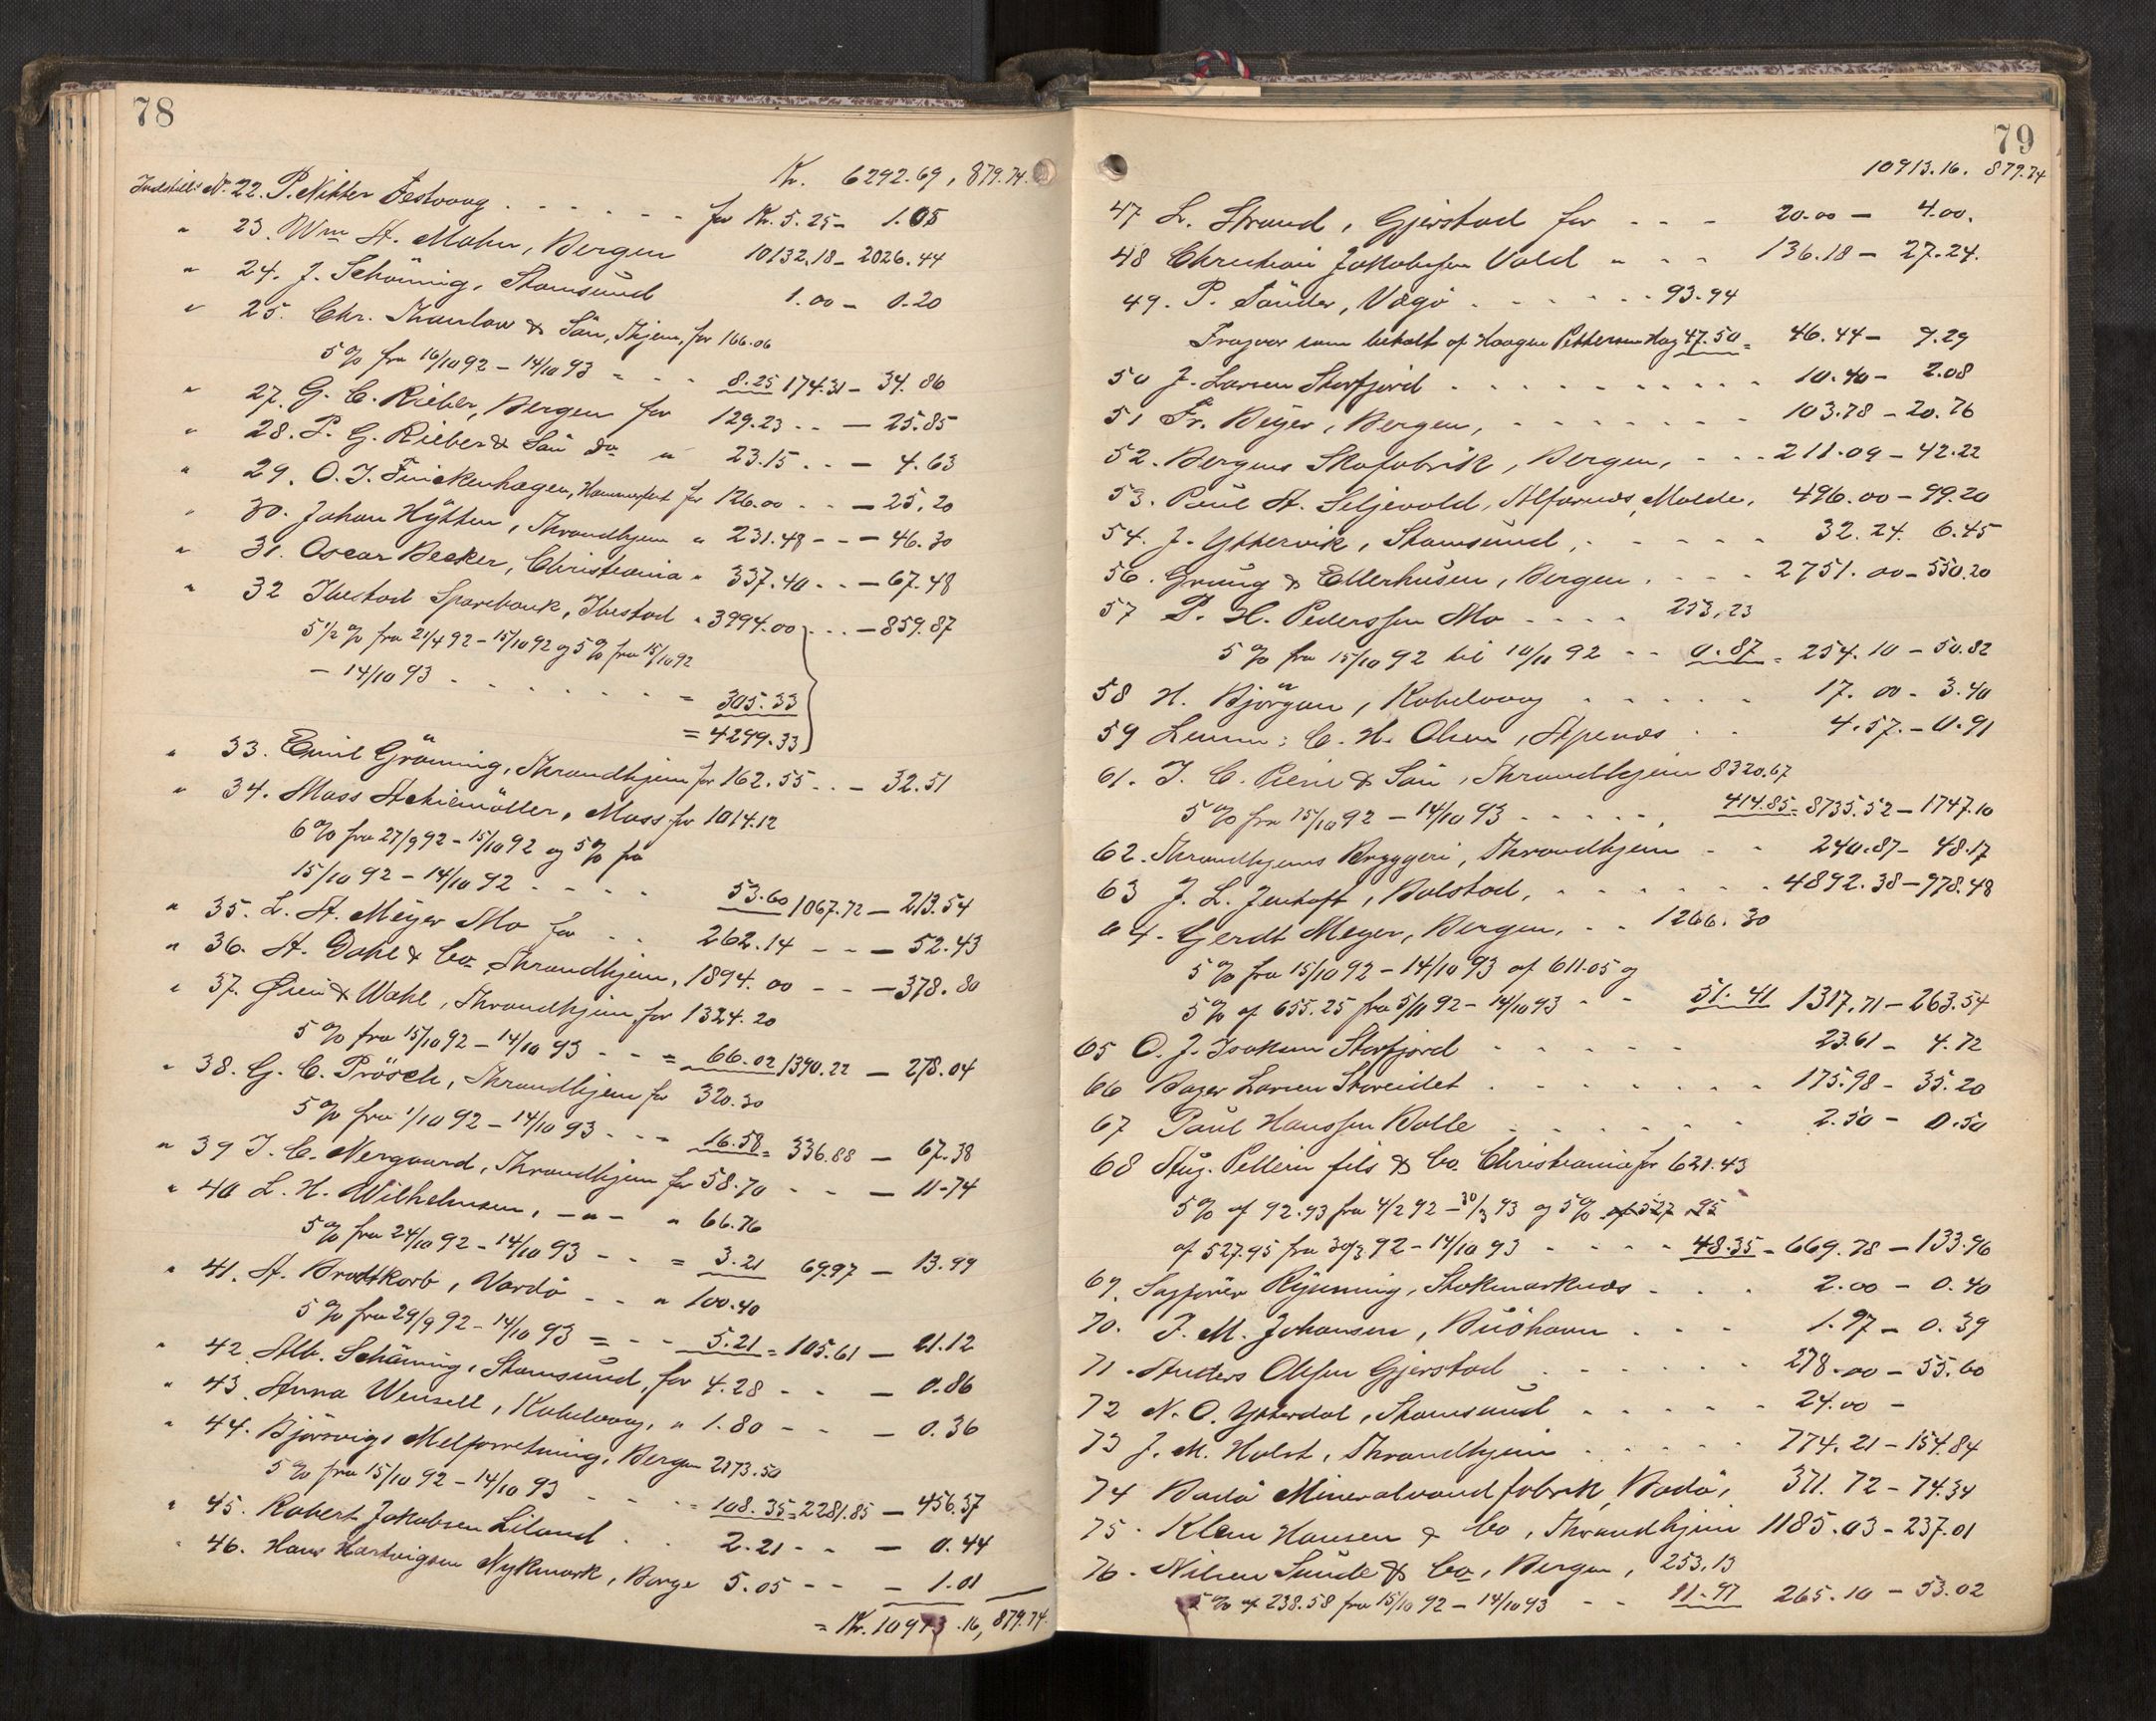 78
Kr. 6292.69, 879.74.
No 22. P. Nikter Festvaag . . . . . . for Kr. 5.25 – 1.05
" 23. Wm A. Mohn, Bergen 10132.18 – 2026.44
" 24. J. Schöning, Stamsund 1.00 – 0.20
" 25. Chr. Thaulow & Sön, Thjem, for 166.06
5 % fra 16/10 92 – 14/10 93 = - - 8.25 174.31 – 34.86
" 27. G. C. Rieber, Bergen for 129.23 . . – 25.85
" 28. P. G. Rieber & Sön do " 23.15 . . – 4.63
" 29. O. J. Finckenhagen, Hammerfest for 126.00 . . – 25.20
" 30. Johan Hÿtten, Throndhjem " 231.48 - - – 46.30
" 31. Oscar Becker, Christiania " 337.40 . . – 67.48
" 32 Ibestad Sparebank, Ibestad " 3994.00 . . . – 859.87
5 1/2 % fra 21/4 92 – 15/10 92 og 5 % fra 15/10 92
– 14/10 93 . . . . . . . = 305.33
= 4299.33
" 33. Emil Gröning, Throndhjem for 162.55 . . – 32.51
" 34. Moss Aktiemöller, Moss for 1014.12
6 % fra 27/9 92 – 15/10 92 og 5 % fra
15/10 92 – 14/10 92 - - - - 53.60 1067.72 – 213.54
" 35. L. A. Meÿer Mo for . . 262.14 - - – 52.43
" 36. A. Dahl & Co, Throndhjem, 1894.00 - - – 378.80
" 37. Øien & Wahl, Throndhjem, for 1324.20
5 % fra 15/10 92 – 14/10 93 - - = 66.02 1390.22 – 278.04
" 38. G. C. Prösch, Throndhjem for 320.30
5 % fra 1/10 92 – 14/10 93 - - - 16.58 = 336.88 – 67.38
" 39 J. C. Nergaard, Throndhjem for 58.70 - - – 11.74
" 40 L. H. Wilhelmsen, – " – " 66.76
5 % fra 24/10 92 – 14/10 93 - - = 3.21 69.97 – 13.99
" 41. A. Brodtkorb, Vardö - - " 100.40
5 % fra 29/9 92 – 14/10 93 = - - 5.21 = 105.61 – 21.12
" 42. Alb. Schöning, Stamsund, for 4.28 - - – 0.86
" 43. Anna Wensell, Kabelvaag, " 1.80 - - – 0.36
" 44. Björsvigs Melforretning, Bergen 2173.50
5 % fra 15/10 92 – 14/10 93 - - - - 108.35 = 2281.85 – 456.37
" 45. Robert Jakobsen Liland . . 2.21 - - – 0.44
" 46. Hans Hartvigsen Nykmark, Borge 5.05 - - – 1.01
= Kr. 10913.16, 879.74.
79
10913.16. 879.74
47 L. Strand, Gjerstad for - - - 20.00 – 4.00.
48 Christian Jakobssen Vold " - - 136.18 – 27.24.
49. P. Sönder, Vågö . - - - - - 93.94
Fragaar som betalt af Haagen Pettersen Hag 47.50 = 46.44 – 9.29
50 J. Larsen Storfjord . - - - - - - - - - 10.40 – 2.08
51 Fr. Beÿer, Bergen, - - - - - - - 103.78 – 20.76
52. Bergens Skofabrik, Bergen, - - - 211.09 – 42.22
53. Paul A. Seljevold, Alfarnæs, Molde, 496.00 – 99.20
54. J. Yttervik, Stamsund, - - - - - 32.24. 6.45
56. Grung & Ellerhusen, Bergen . - - - 2751.00 – 550.20
57 P. H. Pederssen Mo - - - - 253.23
5 % fra 15/10 92 til 10/11 92 - - 0.87 = 254.10 – 50.82
58 H. Björgan, Kabelvaag - - - - - 17.00 - 3.40
59 Lensm: C. H. Olsen, Alpenæs . . 4.57. – 0.91
61. J. C. Piene & Sön, Throndhjem 8320.67
5 % fra 15/10 92 – 14/10 93 - - - - - . 414.85 = 8735.52 – 1747.10
62. Throndhjems Bryggeri, Throndhjem - - 240.87 – 48.17
63 J. L. Jenhoft, Bolstad, - - - - - - - 4892.38 – 978.48
64. Gerdt Meyer, Bergen, - - 1266.30
5 % fra 15/10 92 – 14/10 93 af 611.05 og
5 % af 655.25 fra 5/11 92 – 14/10 93 - - 51.41 1317.71 – 263.54
65 O. J. Isaksen Storfjord - - - - - 23.61 – 4.72
66 Roger Larsen Storeidet . - - - - - - 175.98 – 35.20
67 Paul Hanssen Bolle - - - - - - - 2.50 – 0.50
68 Aug. Pellerin fils & Co. Christiania for 621.43
5 % af 92.93 fra 4/2 92 – 30/3 93 og 5 % af 527.95
af 527.95 fra 30/3 92 – 14/10 93 - - - - 48.35 – 669.78 – 133.96
69. Sagförer Rÿnning, Stokmarknæs - - - 2.00 – 0.40
70. J. M. Johansen, Buöhavn - - - 1.97 – 0.39
71. Anders Olssen Gjerstad . - - - - - 278.00 – 55.60
72 N. O. Ytterdal, Stamsund - - - - - 24.00 –
73 J. M. Holst, Throndhjem - - - - - 774.21 – 154.84
74 Bodö Mineralvandfabrik, Bodö, 371.72 – 74.34
75. Klæu Hansen & Co, Throndhjem 1185.03 – 237.01
76. Nilsen Sunde & Co, Bergen, 253.13
5 % af 238.58 fra 15/10 92 – 14/10 93 - - 11.97 265.10 – 53.02